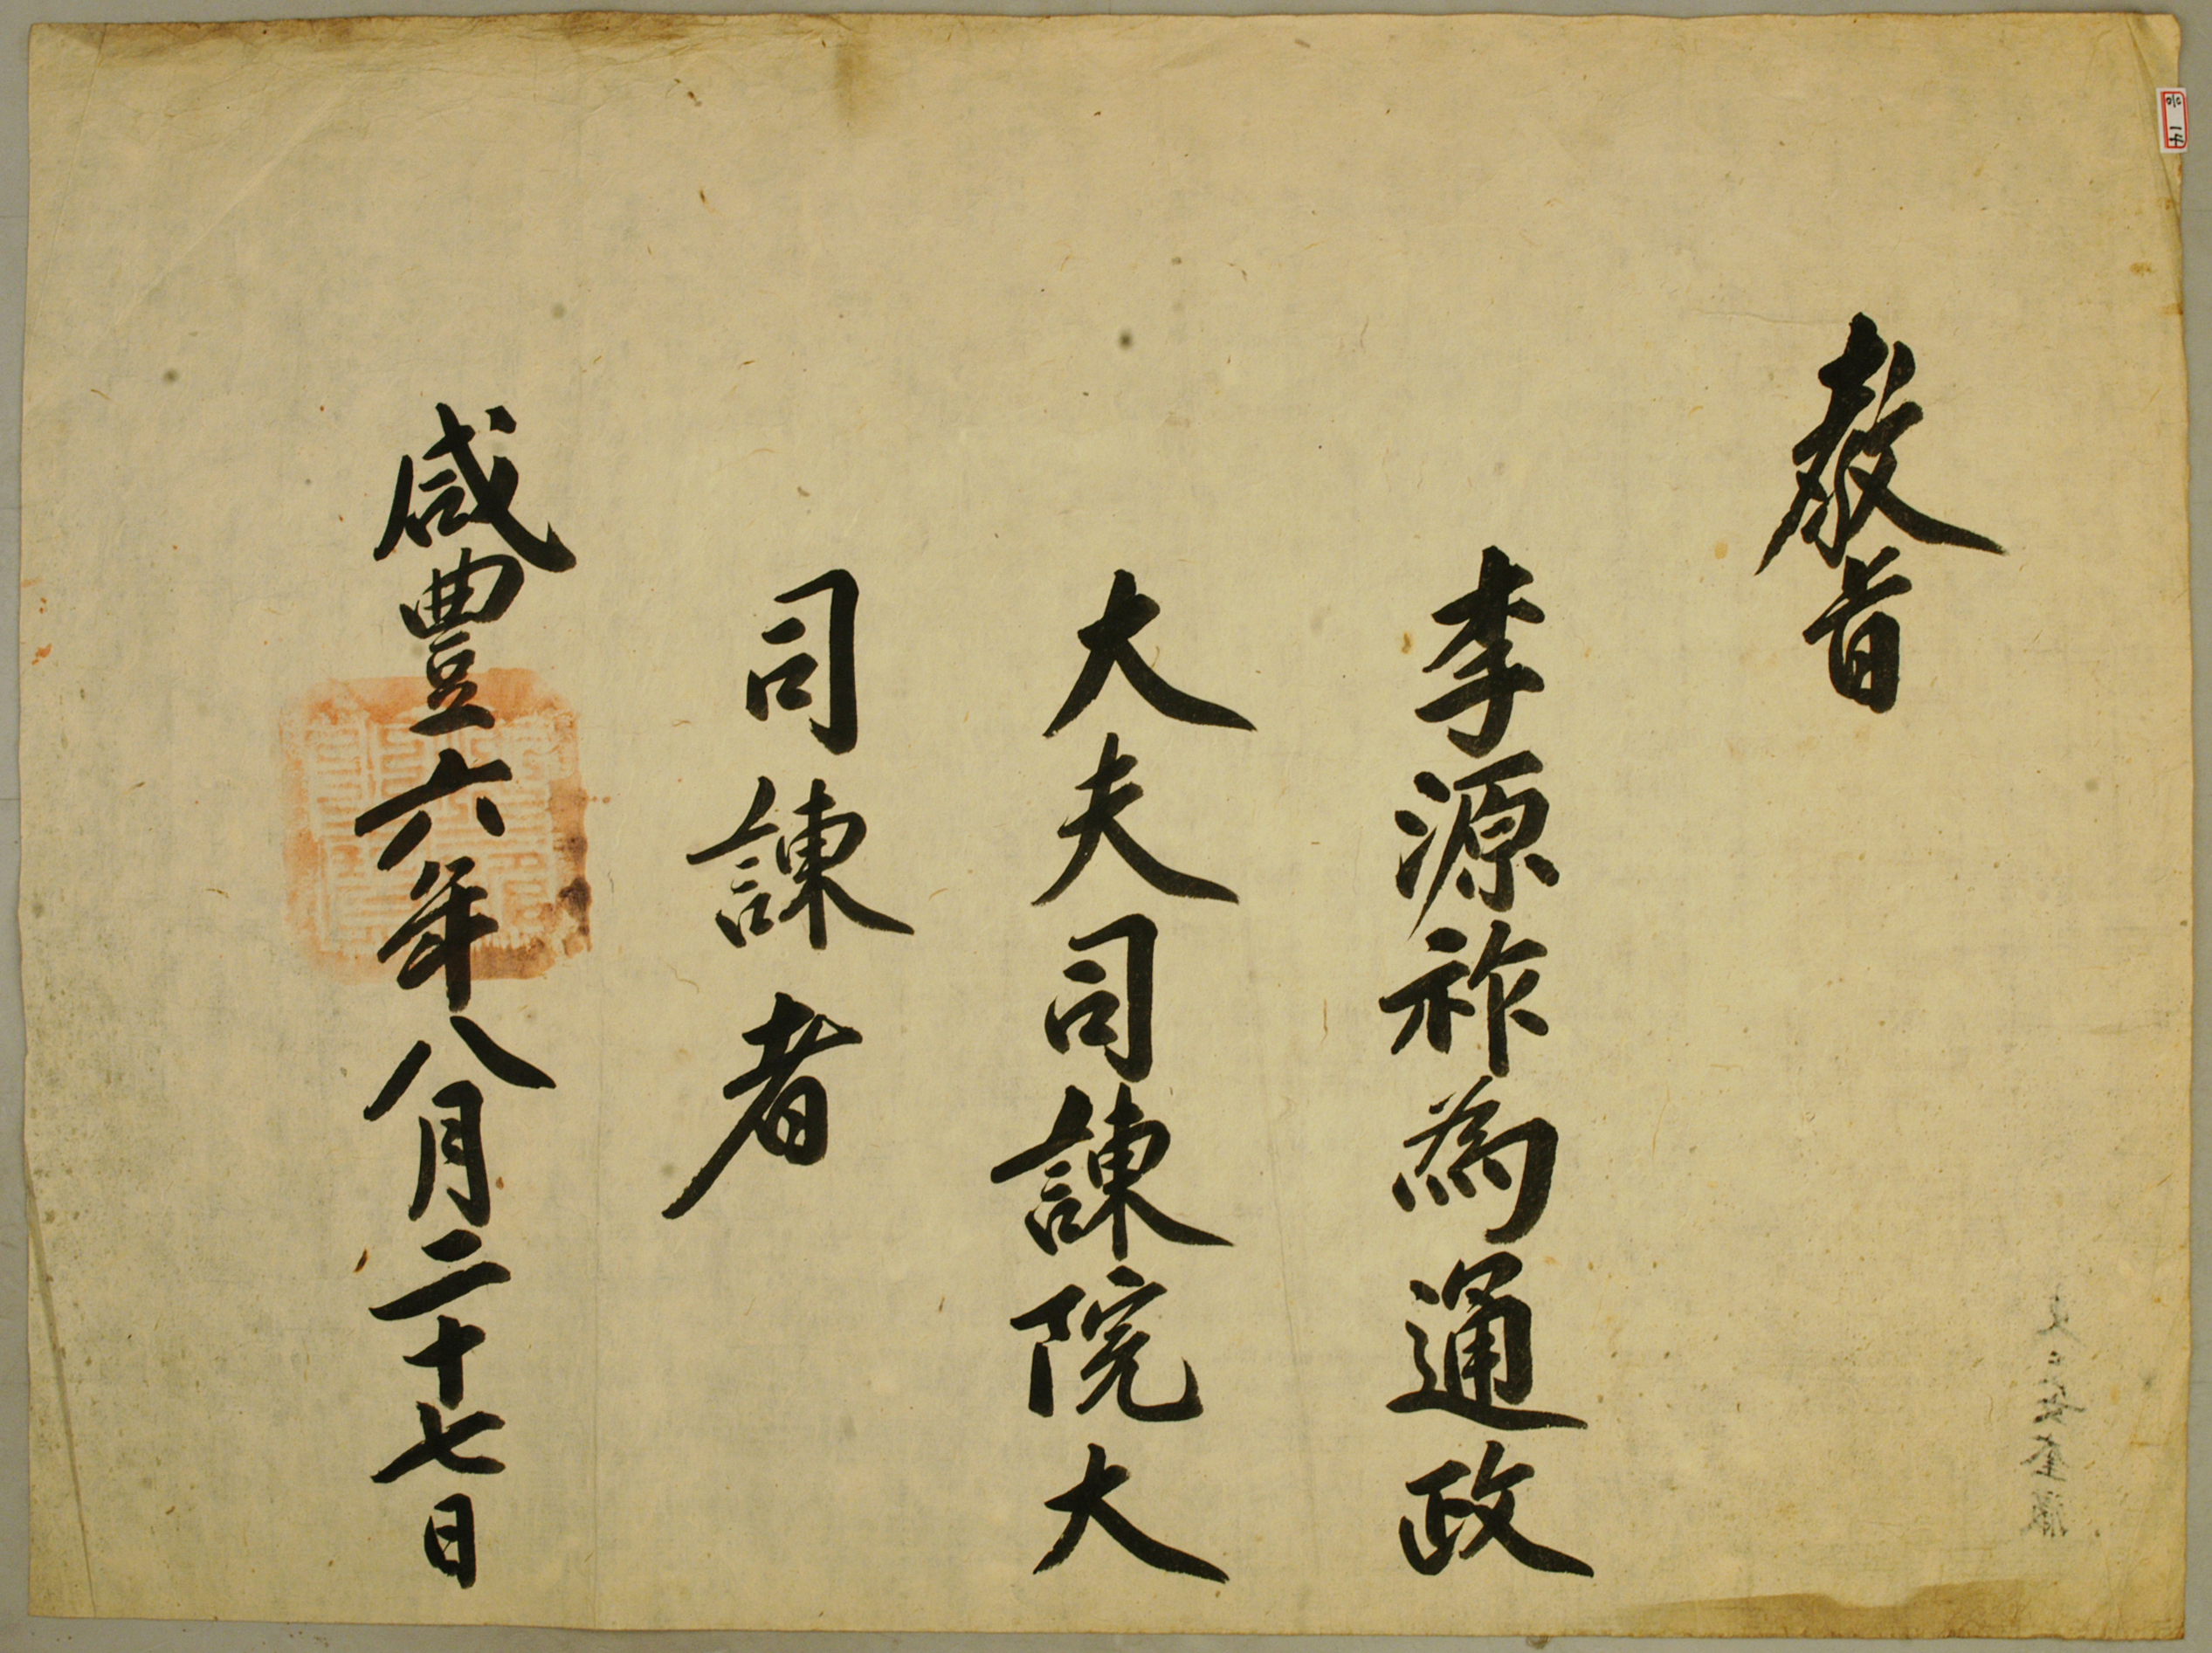 教旨
李源祚爲通政
大夫司諫院大
司諫者
咸豐六年八月二十七日